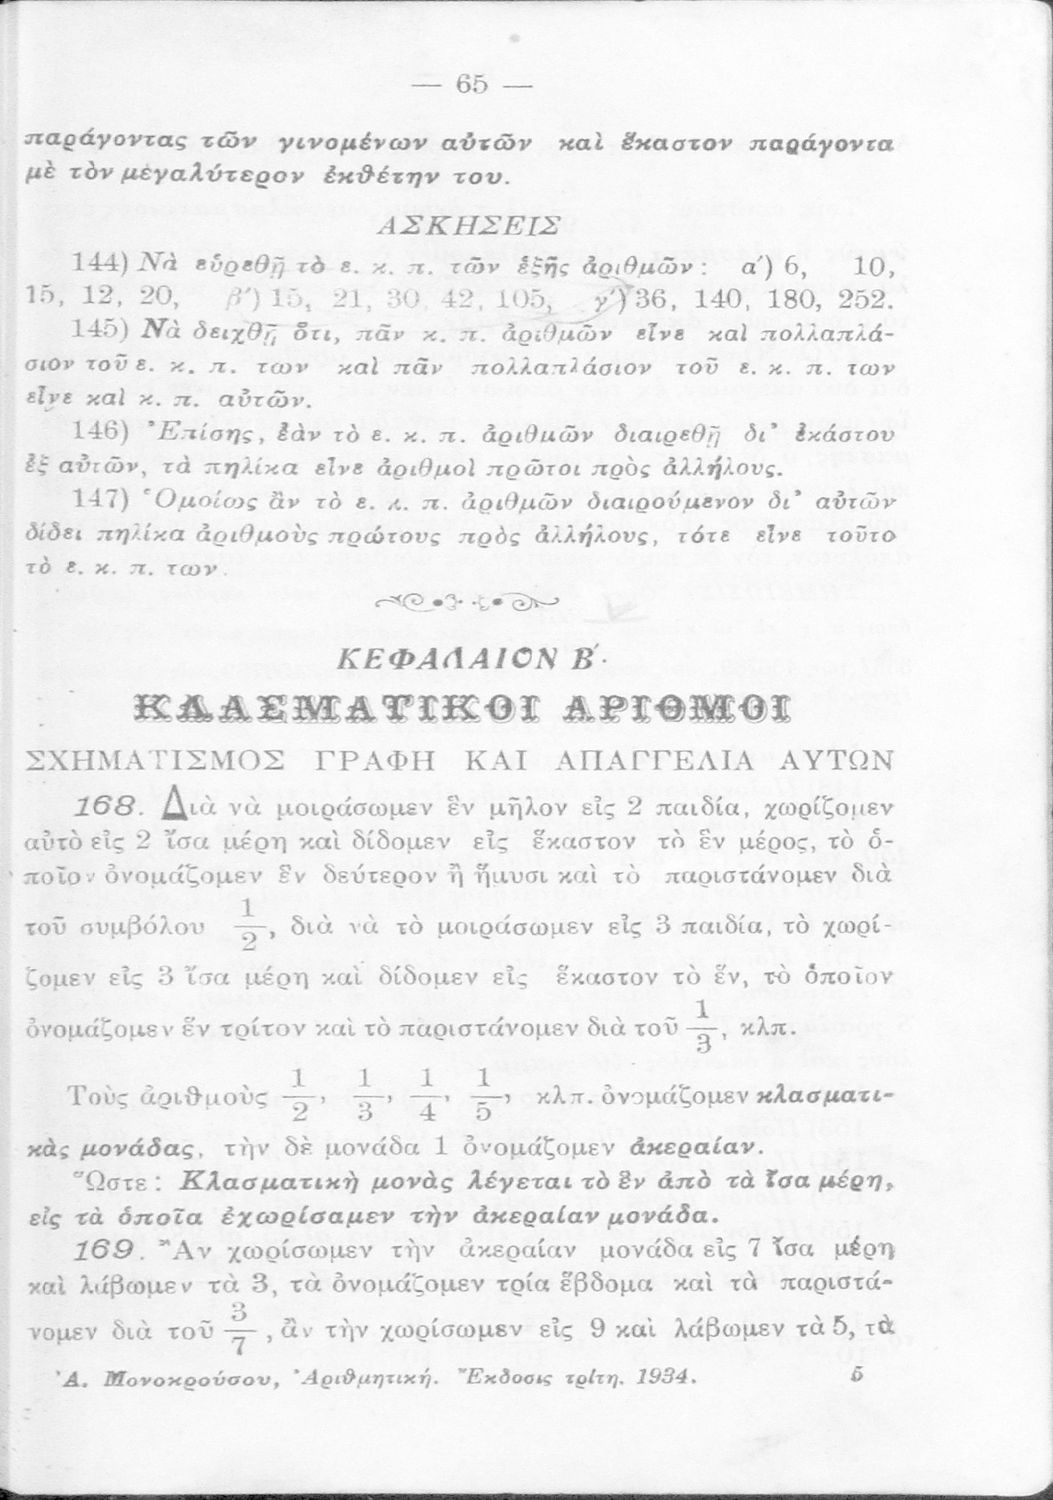 — 65 —
παράγοντας τῶν γινομένων αὐτῶν καὶ ἕκαστον παράγοντα
μὲ τὸν μεγαλύτερον ἐκθέτην του.
ΑΣΚΗΣΕΙΣ
144) Νὰ εὑρεθῇ τὸ ε. κ. π. τῶν ἑξῆς ἀριθμῶν : α′) 6, 10,
15, 12, 20, β′) 15, 21, 30 42, 105, γ′) 36, 140, 180, 252.
145) Νὰ δειχθῇ ὅτι, πᾶν κ. π. ἀριθμῶν εἶνε καὶ πολλαπλά-
σιον τοῦ ε. κ. π. των καὶ πᾶν πολλαπλάσιον τοῦ ε. κ. π. των
εἶνε καὶ κ. π. αὐτῶν.
146) Ἐπίσης, ἐὰν τὸ ε. κ. π. ἀριθμῶν διαιρεθῇ δι' ἑκάστου
ἐξ αὐτῶν, τὰ πηλίκα εἶνε ἀριθμοὶ πρῶτοι πρὸς ἀλλήλους.
147) Ὁμοίως ἂν τὸ ε. κ. π. ἀριθμῶν διαιρούμενον δι' αὐτῶν
δίδει πηλίκα ἀριθμοὺς πρώτους πρὸς ἀλλήλους, τότε εἶνε τοῦτο
τὸ ε. κ. π. των.
ΚΕΦΑΛΑΙΟΝ Β′.
ΚΛΑΣΜΑΤΙΚΟΙ ΑΡΙΘΜΟΙ
ΣΧΗΜΑΤΙΣΜΟΣ ΓΡΑΦΗ ΚΑΙ ΑΠΑΓΓΕΛΙΑ ΑΥΤΩΝ
168. Διὰ νὰ μοιράσωμεν ἓν μῆλον εἰς 2 παιδία, χωρίζομεν
αὐτὸ εἰς 2 ἴσα μέρη καὶ δίδομεν εἰς ἕκαστον τὸ ἓν μέρος, τὸ ὁ-
ποῖον ὀνομάζομεν ἓν δεύτερον ἢ ἥμυσι καὶ τὸ παριστάνομεν διὰ
τοῦ συμβόλου 1/2, διὰ νὰ τὸ μοιράσωμεν εἰς 3 παιδία, τὸ χωρί-
ζομεν εἰς 3 ἴσα μέρη καὶ δίδομεν εἰς ἕκαστον τὸ ἕν, τὸ ὁποῖον
ὀνομάζομεν ἓν τρίτον καὶ τὸ παριστάνομεν διὰ τοῦ 1/3, κλπ.
Τοὺς ἀριθμοὺς 1/2, 1/3, 1/4, 1/5, κλπ. ὀνομάζομεν κλασματι-
κὰς μονάδας, τὴν δὲ μονάδα 1 ὀνομάζομεν ἀκεραίαν.
Ὥστε : Κλασματικὴ μονὰς λέγεται τὸ ἓν ἀπὸ τὰ ἴσα μέρη,
εἰς τὰ ὁποῖα ἐχωρίσαμεν τὴν ἀκεραίαν μονάδα.
169. Ἂν χωρίσωμεν τὴν ἀκεραίαν μονάδα εἰς 7 ἴσα μέρη
καὶ λάβωμεν τὰ 3, τὰ ὀνομάζομεν τρία ἕβδομα καὶ τὰ παριστά-
νομεν διὰ τοῦ 3/7, ἂν τὴν χωρίσωμεν εἰς 9 καὶ λάβωμεν τὰ 5, τὰ
Ἀ. Μονοκρούσου, Ἀριθμητική. Ἔκδοσις τρίτη. 1934. 5